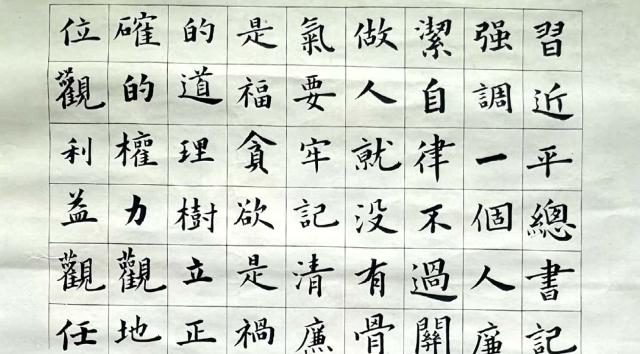 習近平總書記
强調一個人廉
潔自律不過關
做人就没有骨
氣要牢記清廉
是福貪欲是禍
的道理樹立正
確的權力觀地
位觀利益觀任